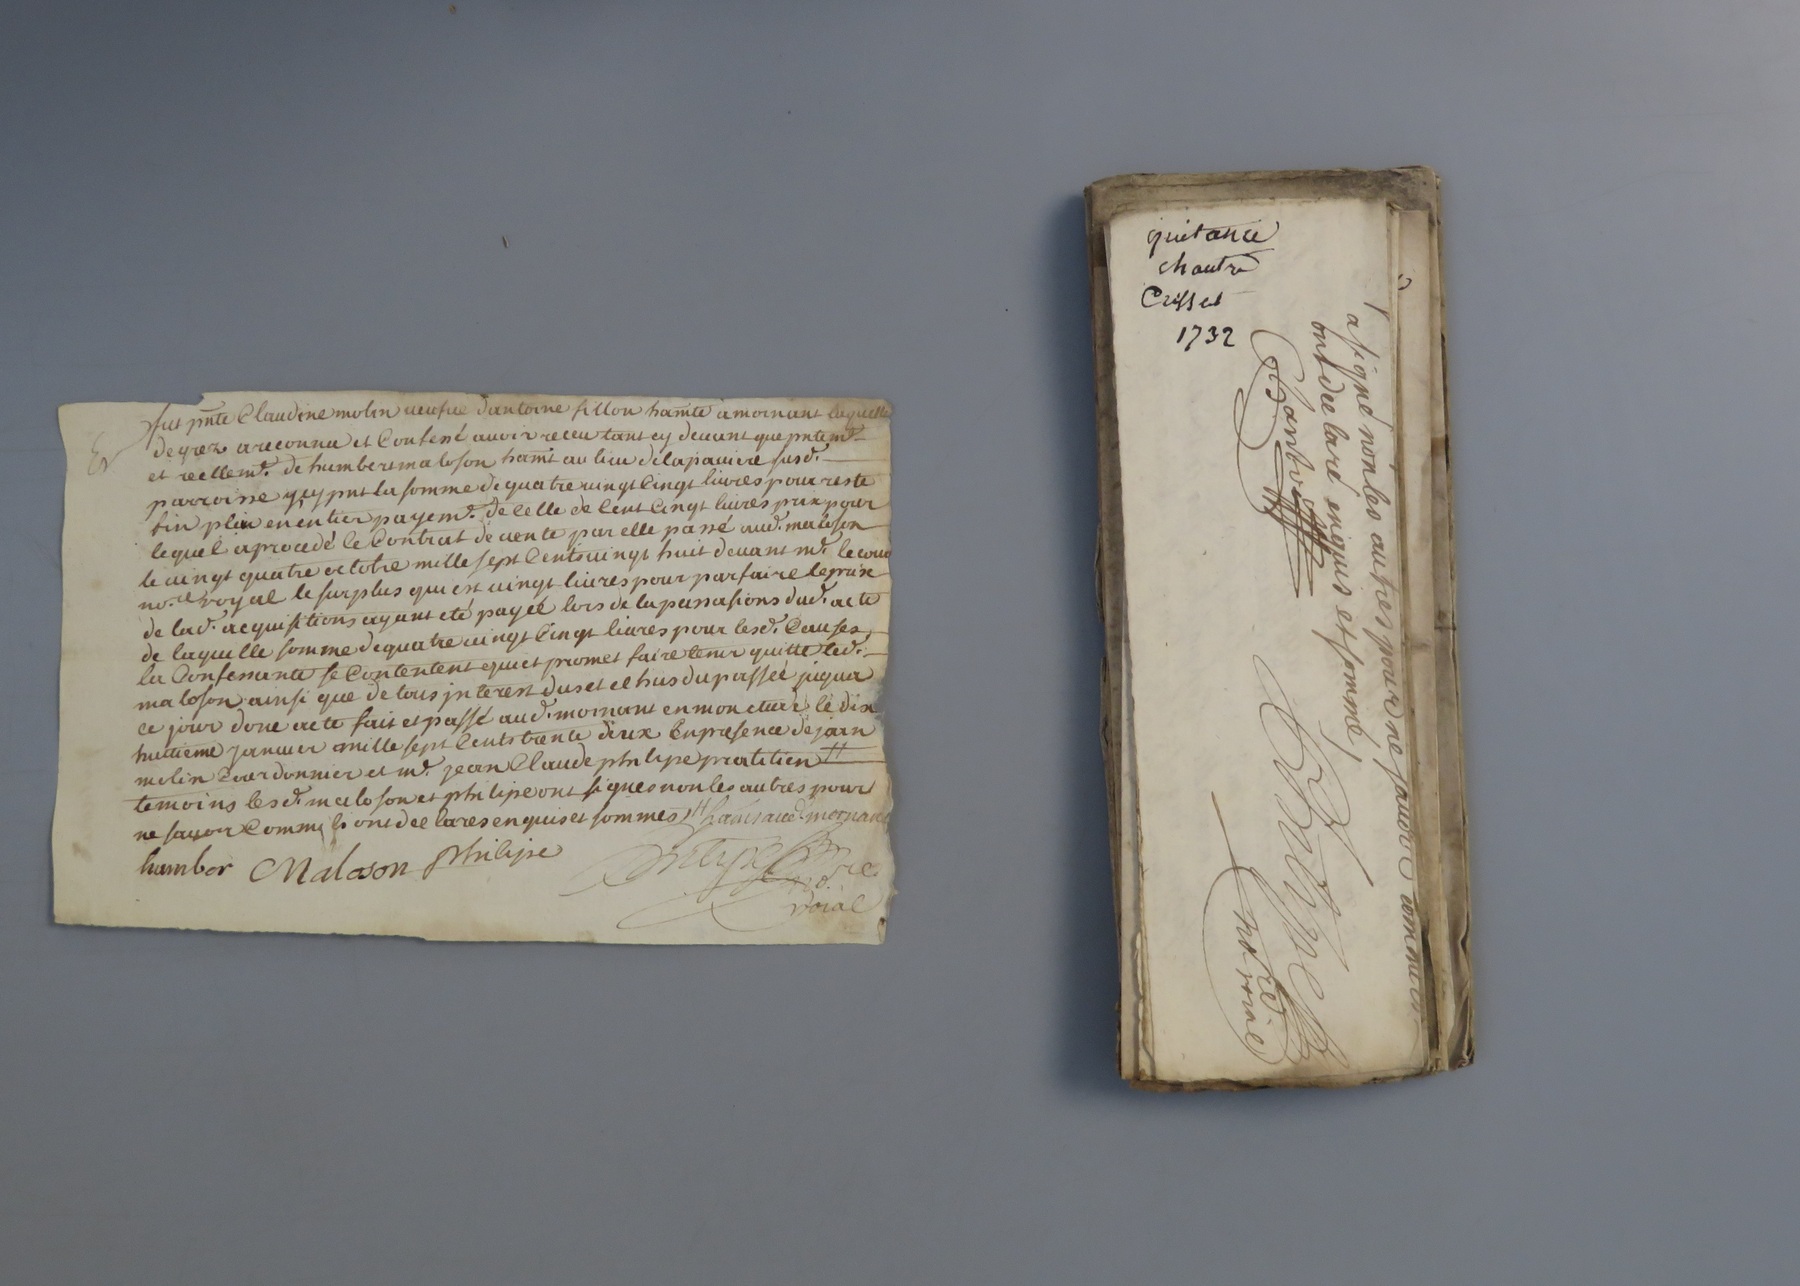 Er
fut pnte Claudine molin veufve dantoine fillon hante a mornant laquelle
de grez a reconnu et Confessé avoir receu tant cy devant que pntemt.
et reellemt. de humbert maloson hant au lieu de lapaviere susd.
parroisse y cy pnt la somme de quatre vingt Cinq livres pour reste
fin plin en entier payemt. de Celle de Cent Cinq livres prix pour
lequel a procedé le Contrat de vente par elle passé aud. maloson
le vingt quatre octobre mille sept Cents vingt huit devant me.
nore. royal le surplus qui est vingt livres pour parfaire le prix
de lad. acquisitions ayant eté payée lors de la passasions dud. acte
de laquelle somme de quatre vingt Cinq livres pour lesd. Causes
la Confessante se Contentent quiet promet faire tenir quitte led.
maloson ainsi que de tous jnterest dus et echus du passée jusqua
ce jour donc acte fait et passé aud. mornant en mon etude le dix
huitieme janvier mille sept Cents trente deux En presence de jean
molin Courdonnier et me. jean Claude philipe pratitien //
temoins lesd. maloson et philipe ont signes non les autres pour
ne savoir Comme ils ont declares enquis et sommes // hants aud. mornant
humber Maloson philipe
philipe nore.
roial
quitance
chautre
Crisset
1732
a signé non les autres pour ne savoir comme ils
ont declaré enquis et sommé
Chambry
philipe
nore roial